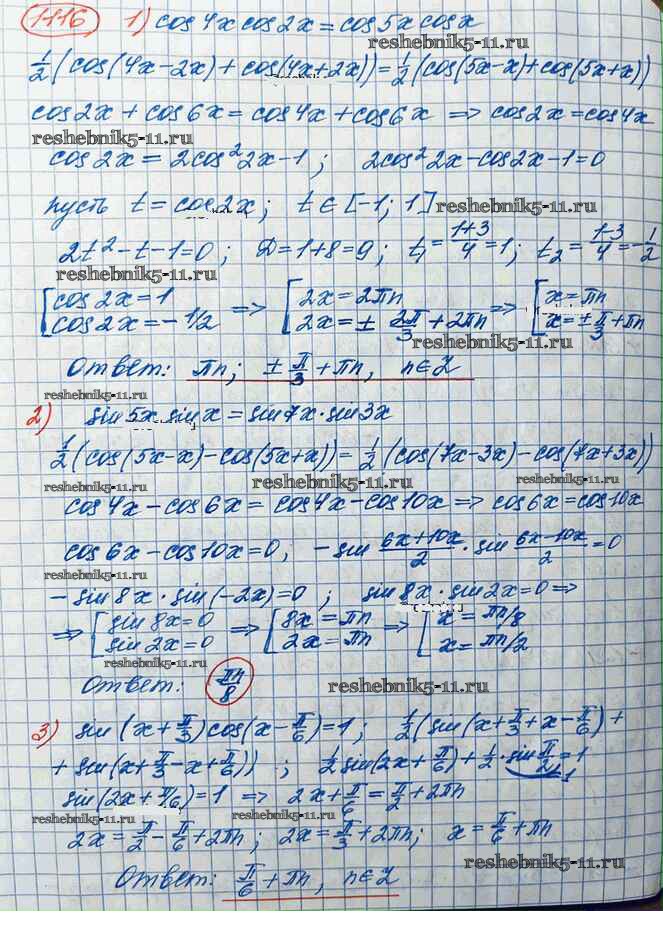 1116) 1) cos4x cos2x = cos5x cosx
reshebnik5-11.ru
1/2 (cos(4x-2x) + cos(4x+2x)) = 1/2 (cos(5x-x) + cos(5x+x))
cos2x + cos6x = cos4x + cos6x => cos2x = cos4x
reshebnik5-11.ru
cos2x = 2cos²2x-1; 2cos²2x-cos2x-1=0
пусть t = cos2x; t ∈ [-1; 1] reshebnik5-11.ru
2t²-t-1=0; D=1+8=9; t₁=(1+3)/4=1; t₂=(1-3)/4=-1/2
reshebnik5-11.ru
[cos2x=1 => [2x=2πn => [x=πn
cos2x=-1/2 2x=± 2π/3+2πn x=±π/3+πn
Ответ: πn; ±π/3+πn, n∈Z
reshebnik5-11.ru
2) sin5x sinx = sin7x·sin3x
1/2 (cos(5x-x)-cos(5x+x)) = 1/2 (cos(7x-3x)-cos(7x+3x))
reshebnik5-11.ru
cos4x-cos6x = cos4x-cos10x => cos6x=cos10x
cos6x-cos10x=0; -sin (6x+10x)/2 · sin (6x-10x)/2 =0
reshebnik5-11.ru
-sin8x·sin(-2x)=0; sin8x·sin2x=0 =>
=> [sin8x=0 => [8x=πn => [x=πn/8
sin2x=0 2x=πn x=πn/2
reshebnik5-11.ru
Ответ: πn/8 reshebnik5-11.ru
3) sin(x+π/3)cos(x-π/6)=1; 1/2(sin(x+π/3+x-π/6)+
+sin(x+π/3-x+π/6)); 1/2 sin(2x+π/6)+1/2·sin π/2=1
1
reshebnik5-11.ru
sin(2x+π/6)=1 => 2x+π/6=π/2+2πn
reshebnik5-11.ru reshebnik5-11.ru
2x=π/2-π/6+2πn; 2x=π/3+2πn; x=π/6+πn
reshebnik5-11.ru
Ответ: π/6+πn, n∈Z